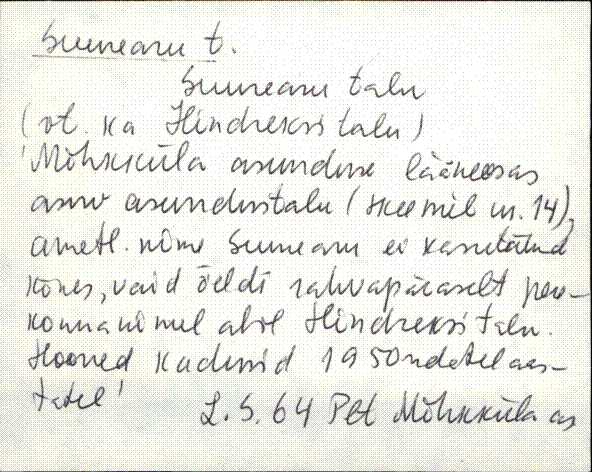 Suurearu t.
Suurearu talu
(vt. ka Hindreksi talu)
'Mõhkküla asunduse lääneosas
asuv asundustalu (skeemil nr. 14),
ametl. nime Suurearu ei kasutatud
kõnes, vaid öeldi rahvapäraselt pere-
konnanimel abil Hindreksi talu.
Hooned kadusid 1950ndatel aas-
tatel'
L. S. 64 Pet Mõhkküla as